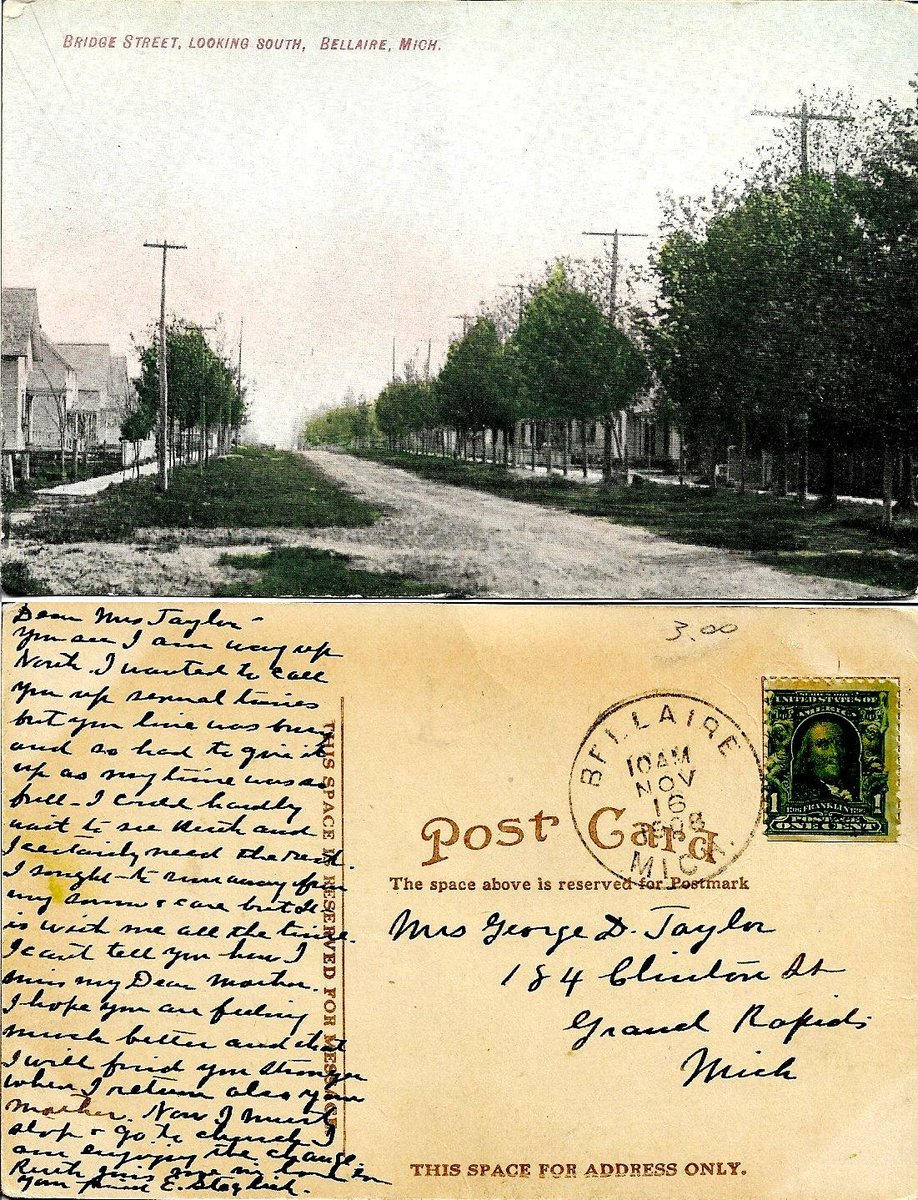 BRIDGE STREET, LOOKING SOUTH, BELLAIRE, MICH.
Dear Mrs Taylor -
You see I am way up
North. I wanted to call
you up several times
but you line was busy
and so had to give it
up as my time was so
full - I could hardly
wait to see Ruth and
I certainly need the rest.
I sought to run away from
my sorrow & care but it
is with me all the time.
I can't tell you how I
miss my Dear Mother.
I hope you are feeling
much better and that
I will find you stronger
when I return also your
mother. Now I must
stop & go to church I
am enjoying the change
Ruth joins me in love
Your friend E.
THIS SPACE IS RESERVED FOR MESSAGE.
3.00
BELLAIRE
10 AM
NOV
16
1908
MICH.
SERIES 1902
UNITED STATES OF AMERICA
1706 FRANKLIN 1790
1 1
POSTAGE
ONE CENT
Post Card
The space above is reserved for Postmark
Mrs George D. Taylor
184 Clinton St
Grand Rapids
Mich
THIS SPACE FOR ADDRESS ONLY.